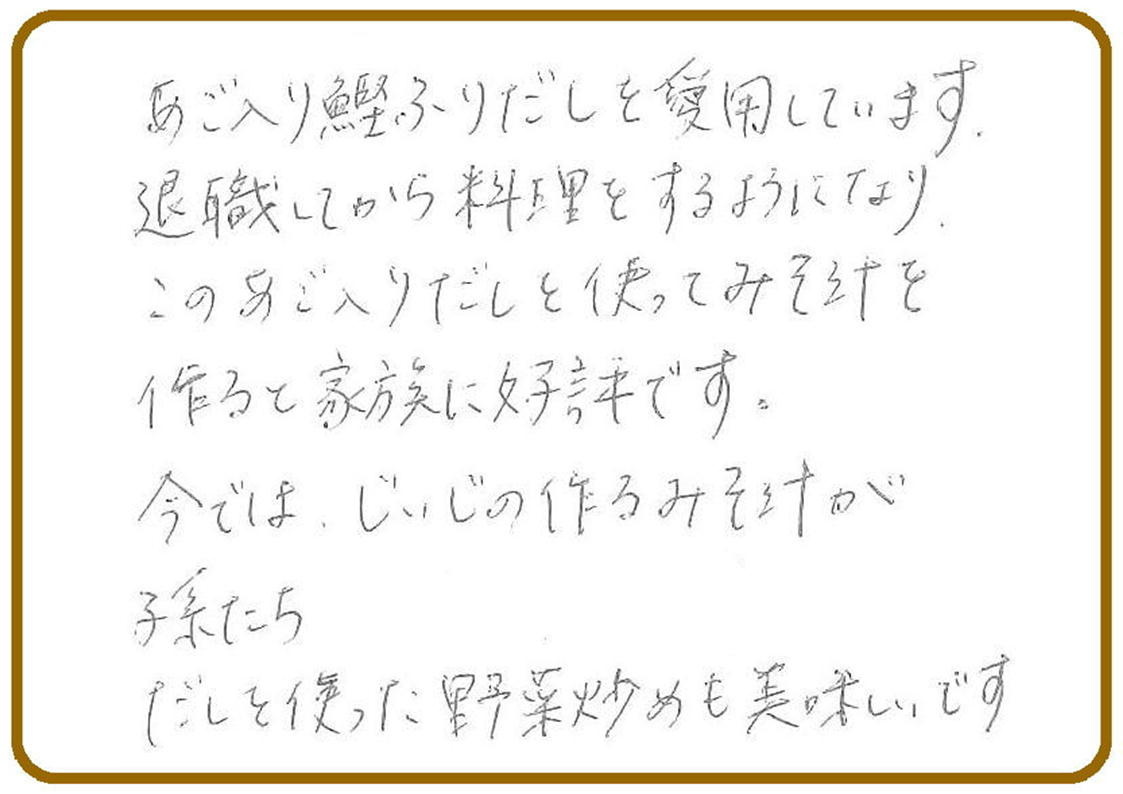 あご入り鰹ふりだしを愛用しています.
退職してから料理をするようになり.
このあご入りだしを使ってみそ汁を
作ると家族に好評です。
今では、じぃじの作るみそ汁が
孫たち
だしを使った野菜炒めも美味しいです